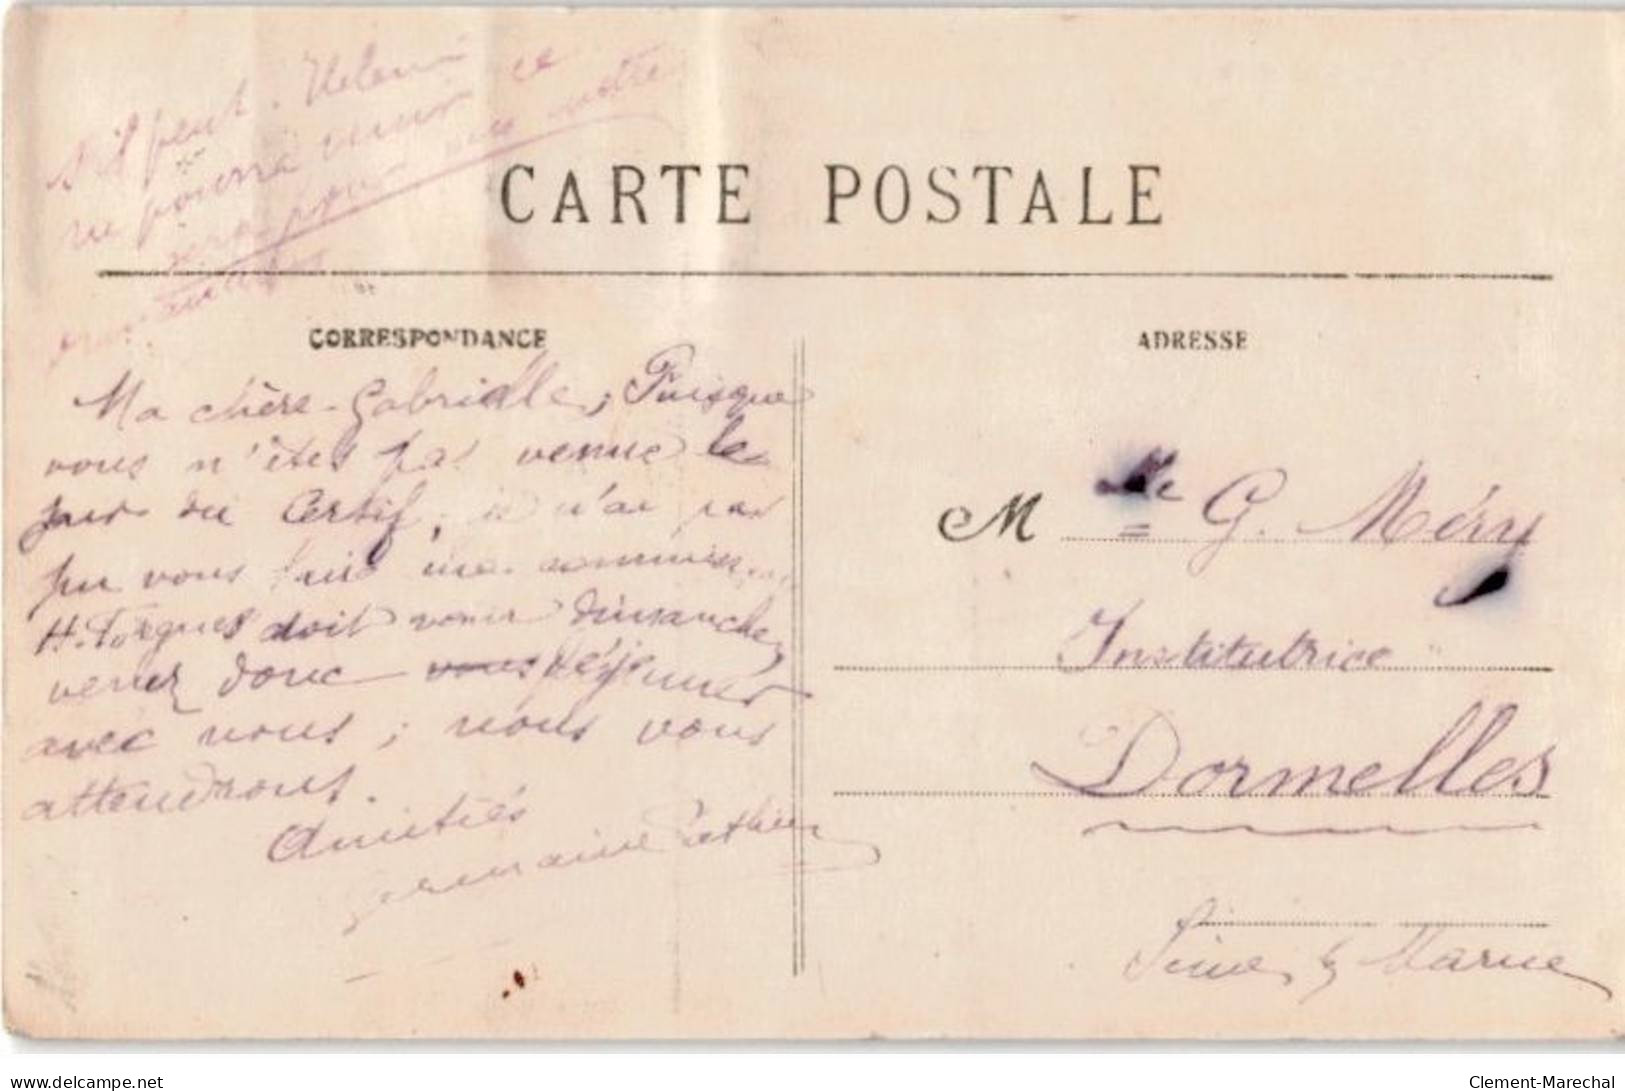 s'il peut. Helène
ne pourra venir ce
sera pour une autre
CARTE POSTALE
CORRESPONDANCE
Ma chère Gabrielle, Puisque
vous n'êtes pas venue le
jour du Certif, je n'ai pas
pu vous faire ma commission.
H. Forgues doit venir dimanche,
venez donc vous déjeuner
avec nous; nous vous
attendrons.
Amitiés
Germaine
ADRESSE
M lle G. Méry
Institutrice
Dormelles
Seine & Marne
www.delcampe.net
Clement-Marechal